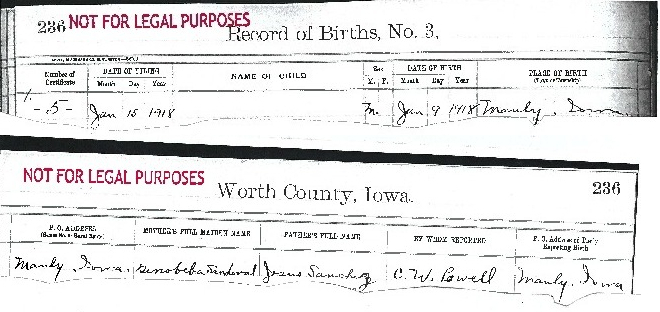 236 NOT FOR LEGAL PURPOSES
Record of Births, No. 3,
Number of Certificate
DATE OF FILING
Month Day Year
NAME OF CHILD
Sex
M. F.
DATE OF BIRTH
Month Day Year
PLACE OF BIRTH
(Town or Township)
1.
- 5 - Jan 15 1918 M. Jan 9 1918 Manly, Iowa
NOT FOR LEGAL PURPOSES
Worth County, Iowa. 236
P. O. ADDRESS
MOTHER'S FULL MAIDEN NAME
FATHER'S FULL NAME
BY WHOM REPORTED
P. O. Address of Party
Reporting Birth
Manly Iowa. Sandoval Jesus Sanchez C. W. Powell Manly, Iowa